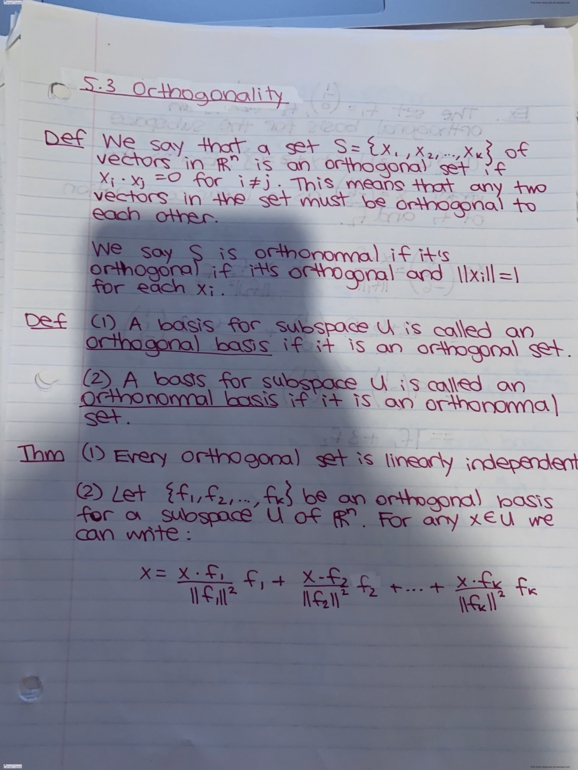 5.3 Orthogonality
Def We say that a set S = {x₁, x₂, ..., xₖ} of
vectors in ℝⁿ is an orthogonal set if
xᵢ · xⱼ = 0 for i ≠ j. This means that any two
vectors in the set must be orthogonal to
each other.
We say S is orthonormal if it's
orthogonal if it's orthogonal and ||xᵢ|| = 1
for each xᵢ.
Def (1) A basis for subspace U is called an
orthogonal basis if it is an orthogonal set.
(2) A basis for subspace U is called an
orthonormal basis if it is an orthonormal
set.
Thm (1) Every orthogonal set is linearly independent
(2) Let {f₁, f₂, ..., fₖ} be an orthogonal basis
for a subspace U of ℝⁿ. For any x ∈ U we
can write:
x = (x · f₁)/||f₁||² f₁ + (x · f₂)/||f₂||² f₂ + ... + (x · fₖ)/||fₖ||² fₖ